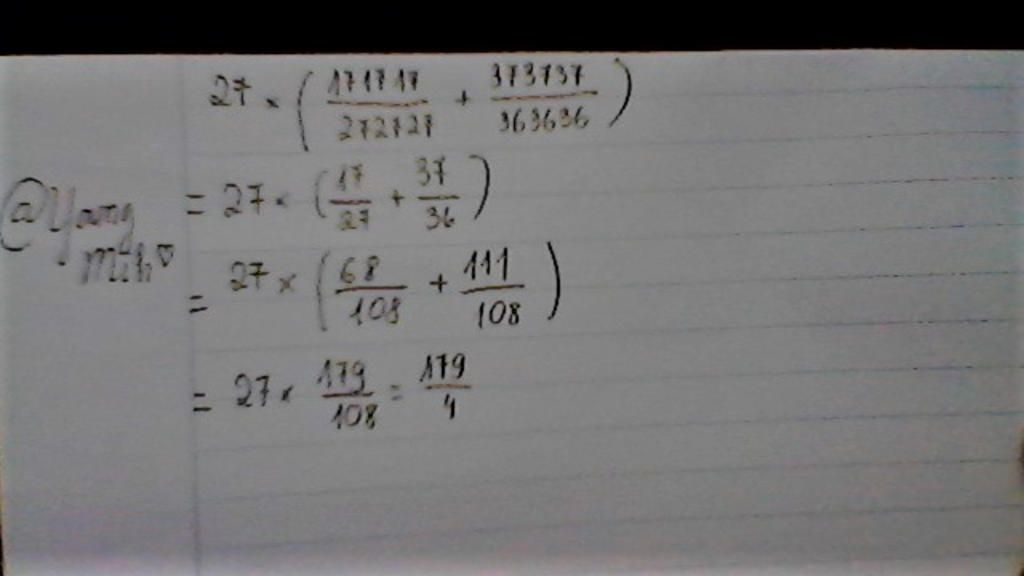 27 × ( 171717/272727 + 373737/363636 )
= 27 × ( 17/27 + 37/36 )
= 27 × ( 68/108 + 111/108 )
= 27 × 179/108 = 179/4
@Young